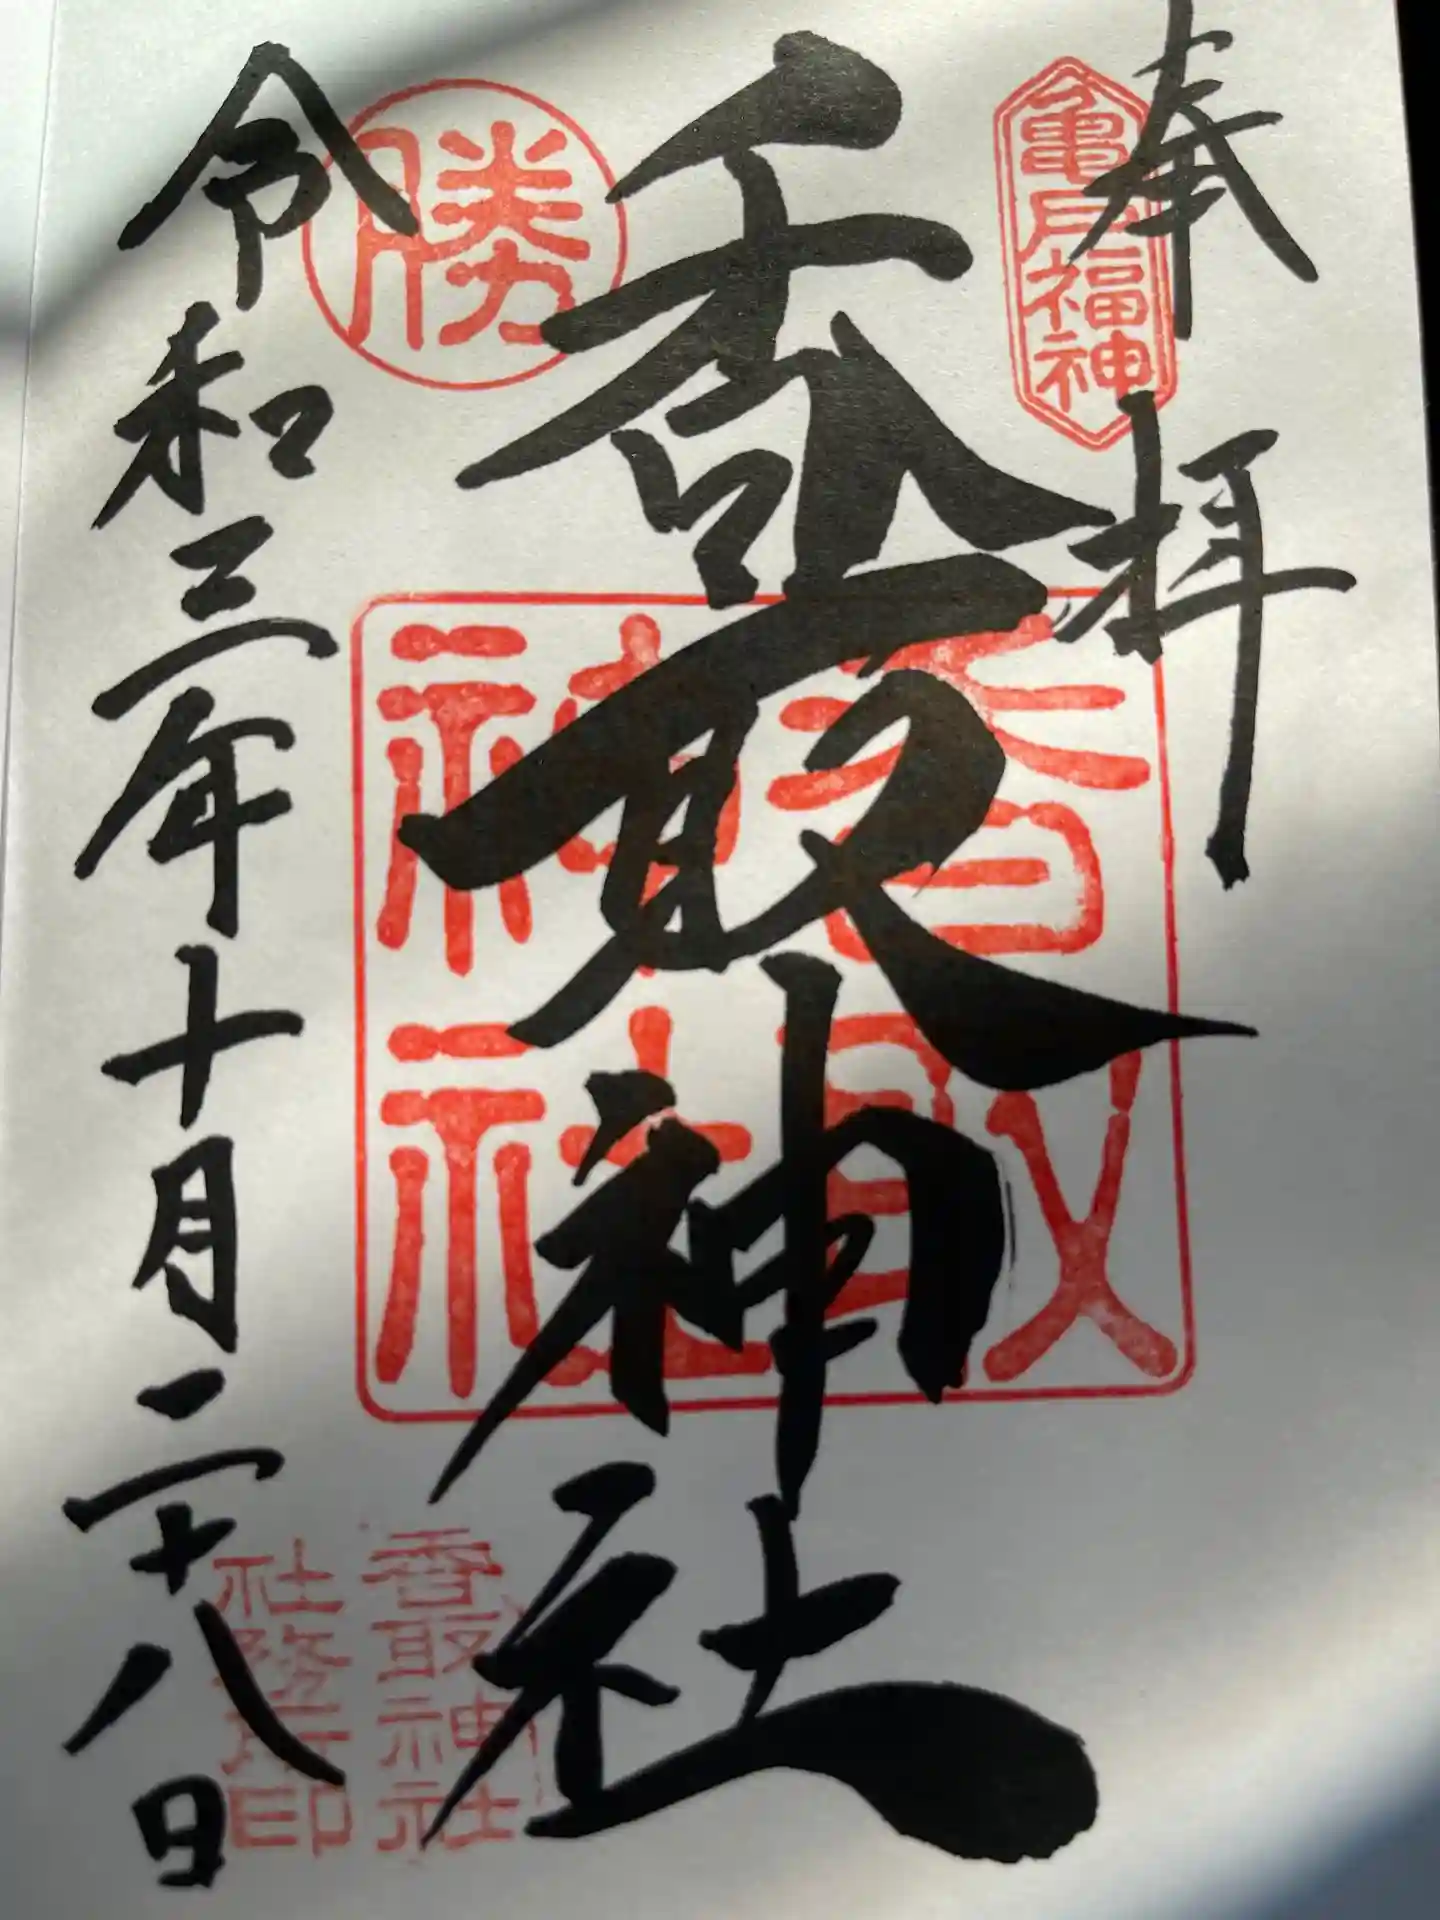 奉拝
亀戸福神
香取神社
香取神社
勝
香取神社
社務所印
令和三年十月二十八日